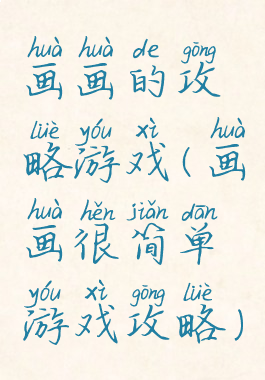 huà huà de gōng
画画的攻
lüè yóu xì huà
略游戏(画
huà hěn jiǎn dān
画很简单
yóu xì gōng lüè
游戏攻略)